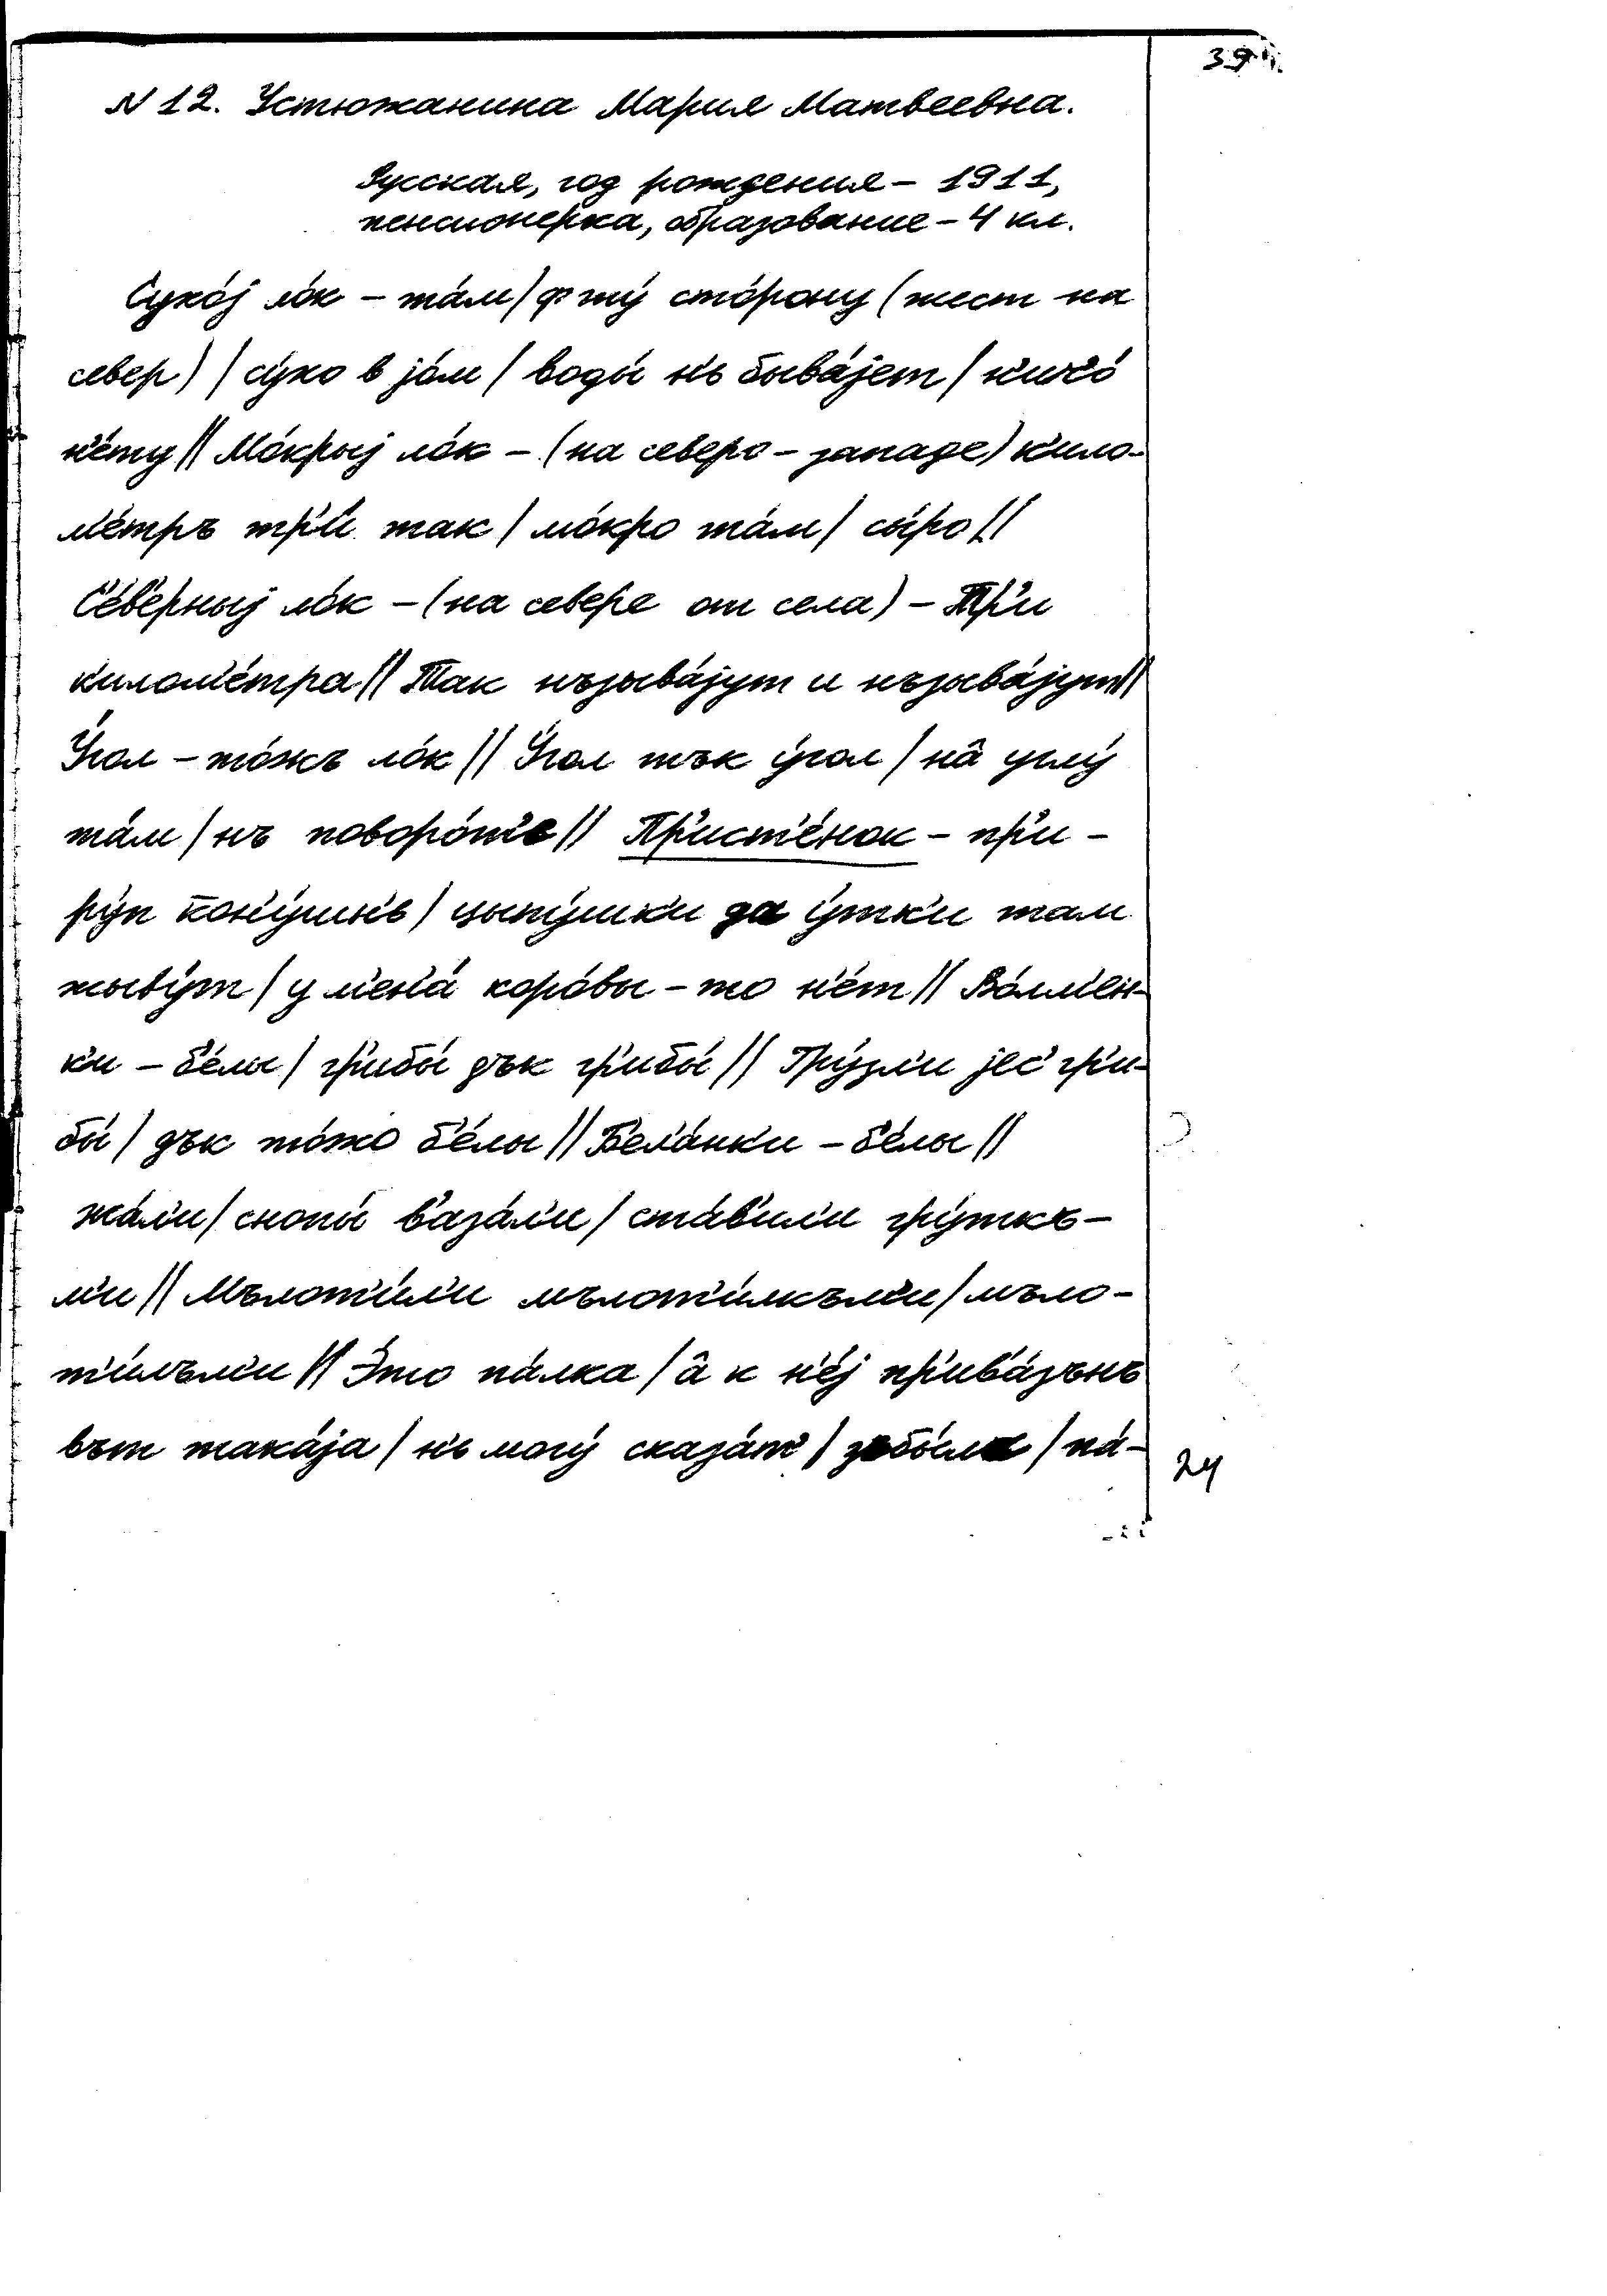 39
N 12. Устюжанина Мария Матвеевна.
Русская, год рождения – 1911,
пенсионерка, образование – 4 кл.
Сухо́j ло́к – та́м / ф ту́ сто́рону (жест на
север) / су́хо в jо́м / воды́ н'ь быва́jет / н'ич'о́
н'е́ту // Мо́крыj ло́к – (на северо-западе) к'ило-
м'е́тръ тр'и́ так / мо́кро та́м / сы́ро //
С'е́в'ерныj ло́к – (на севере от села) – Тр'и
к'илом'е́тра // Так нъзыва́jут и нъзыва́jут //
У́гол – то́жъ ло́к // У́гол тък у́гол / на̂ углу́
та́м / нъ поворо́т'е // Пр'ист'е́нок – пр'и-
ру́п к он'у́шн'ь / цыпу́шк'и да у́тк'и там
жыву́т / у м'ен'а́ коро́вы-то н'е́т // Во́лм'ен-
к'и – б'е́лы / гр'ибы́ дък гр'ибы́ // Гру́зл'и jес' гр'и-
бы́ / дък то́жо б'е́лы // Б'ел'а́нк'и – б'е́лы //
жа́л'и / снопы́ в'аза́л'и / ста́в'ил'и гру́ткъ-
м'и // Мълот'и́л'и мълот'и́лкъм'и / мъло-
т'и́лъм'и // Э́то па́лка / а̂ к н'е́j пр'ив'а́зънъ
вът така́jа / н'ь могу́ сказа́т' / зъбы́ла / па́-
24